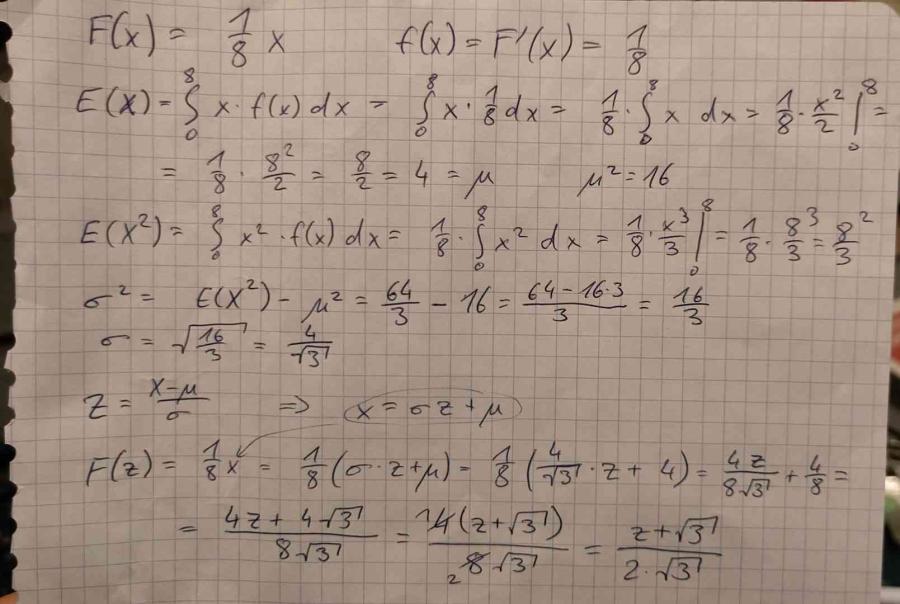 F(x) = 1/8 x f(x) = F'(x) = 1/8
E(X) = ∫₀⁸ x · f(x) dx = ∫₀⁸ x · 1/8 dx = 1/8 · ∫₀⁸ x dx = 1/8 · x²/2 |₀⁸ =
= 1/8 · 8²/2 = 8/2 = 4 = μ μ² = 16
E(X²) = ∫₀⁸ x² · f(x) dx = 1/8 · ∫₀⁸ x² dx = 1/8 · x³/3 |₀⁸ = 1/8 · 8³/3 = 8²/3
σ² = E(X²) - μ² = 64/3 - 16 = (64 - 16·3)/3 = 16/3
σ = √(16/3) = 4/√3
Z = (X-μ)/σ ⇒ x = σz + μ
F(z) = 1/8 x = 1/8 (σ·z + μ) = 1/8 (4/√3 · z + 4) = 4z/(8√3) + 4/8 =
= (4z + 4√3)/(8√3) = 1 4(z + √3)/(2 8√3) = (z + √3)/(2·√3)